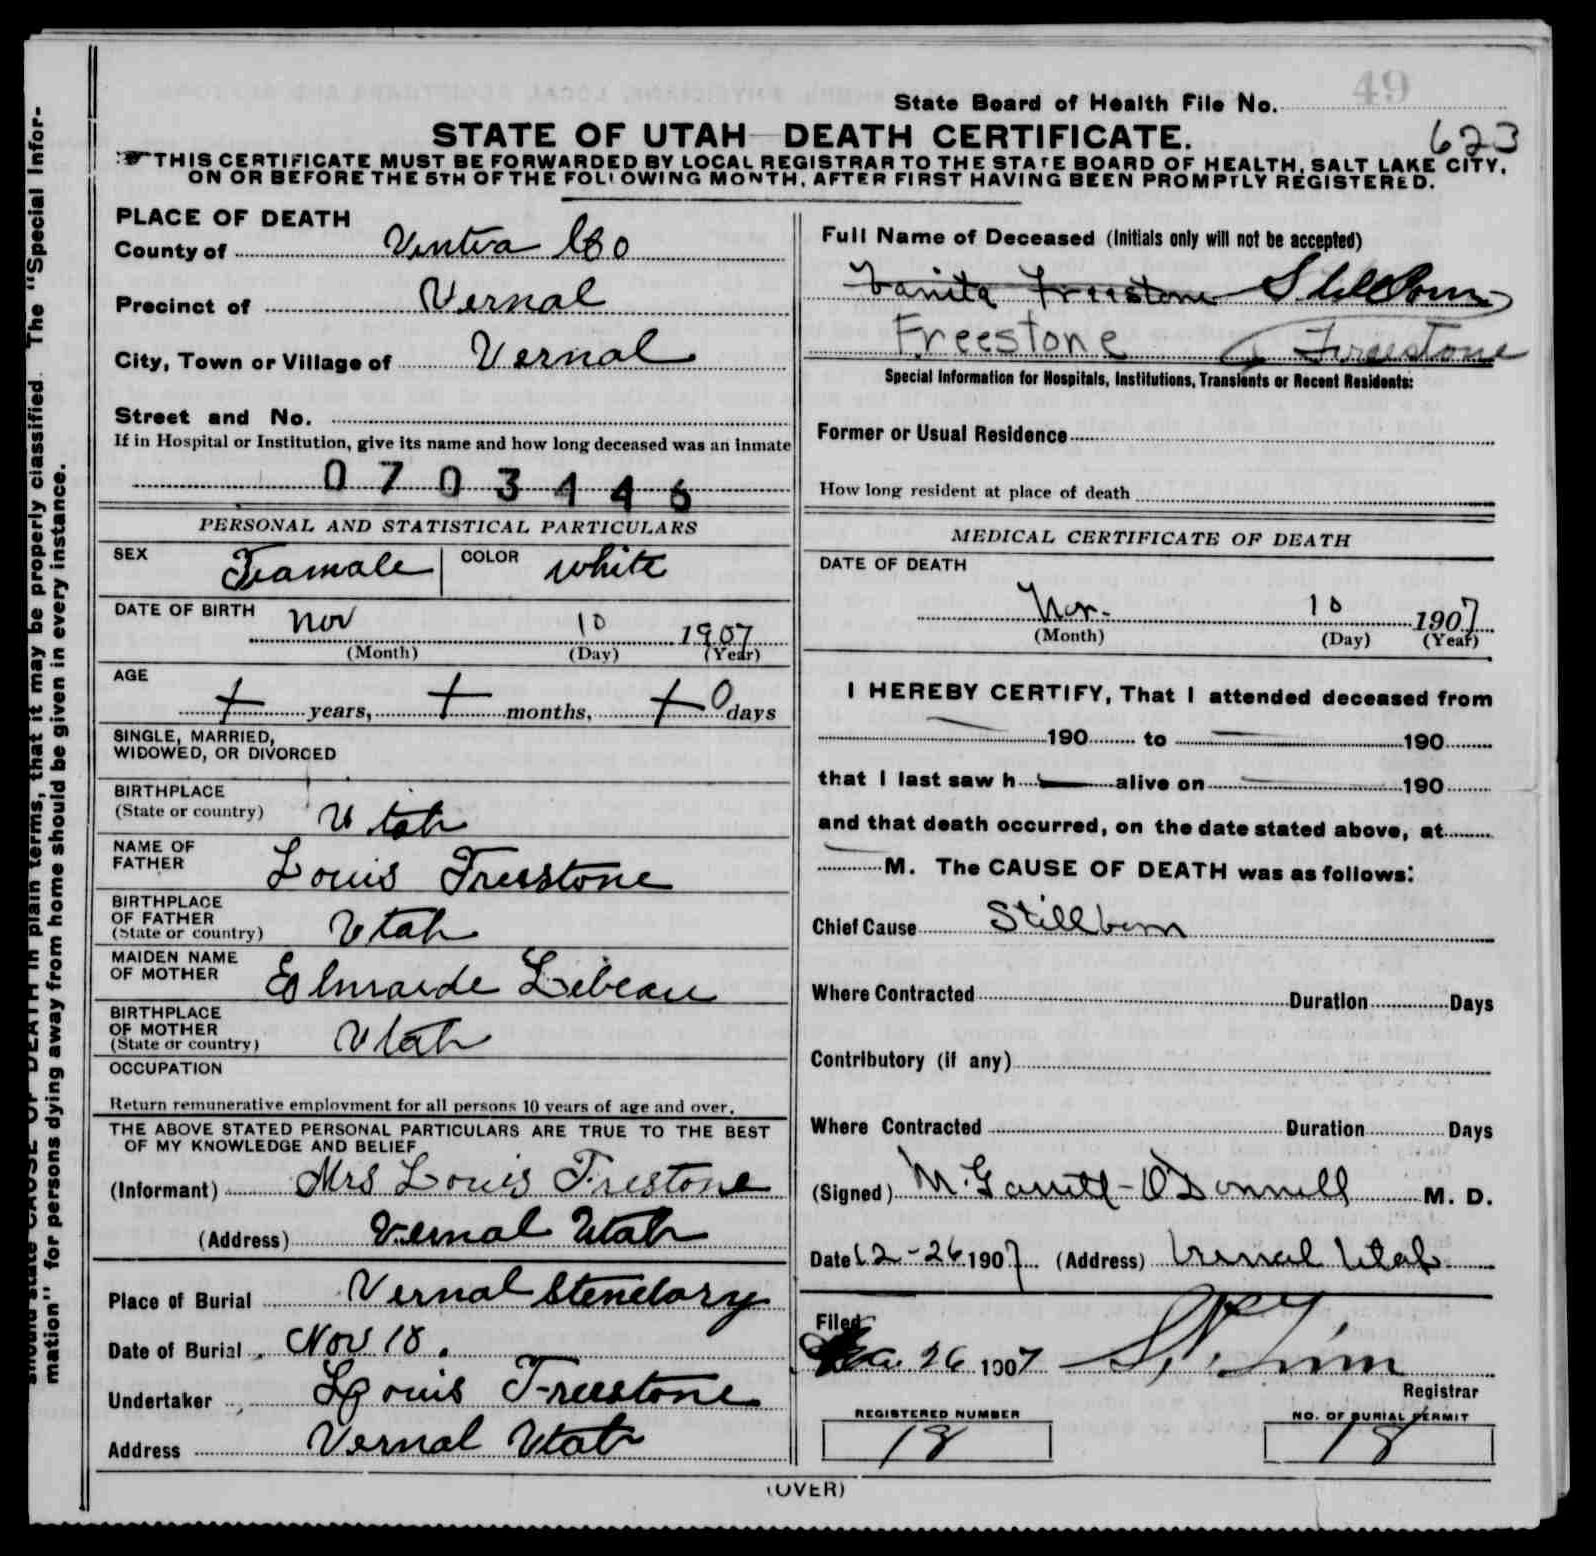 49
State Board of Health File No.
623
STATE OF UTAH—DEATH CERTIFICATE.
☛THIS CERTIFICATE MUST BE FORWARDED BY LOCAL REGISTRAR TO THE STATE BOARD OF HEALTH, SALT LAKE CITY,
ON OR BEFORE THE 5TH OF THE FOLLOWING MONTH, AFTER FIRST HAVING BEEN PROMPTLY REGISTERED.
PLACE OF DEATH
County of Uinta Co
Precinct of Vernal
City, Town or Village of Vernal
Street and No.
If in Hospital or Institution, give its name and how long deceased was an inmate
0703446
PERSONAL AND STATISTICAL PARTICULARS
SEX Feamale COLOR white
DATE OF BIRTH Nov 10 1907
(Month) (Day) (Year)
AGE
+ years, + months, + 0 days
SINGLE, MARRIED,
WIDOWED, OR DIVORCED
BIRTHPLACE
(State or country) Utah
NAME OF
FATHER Louis Freestone
BIRTHPLACE
OF FATHER
(State or country) Utah
MAIDEN NAME
OF MOTHER Libeau
BIRTHPLACE
OF MOTHER
(State or country) Utah
OCCUPATION
Return remunerative employment for all persons 10 years of age and over.
THE ABOVE STATED PERSONAL PARTICULARS ARE TRUE TO THE BEST
OF MY KNOWLEDGE AND BELIEF
(Informant) Mrs Louis Frestone
(Address) Vernal Utah
Place of Burial Vernal
Date of Burial Nov 18.
Undertaker Louis Freestone
Address Vernal Utah
Full Name of Deceased (Initials only will not be accepted)
Freestone Stillborn
Freestone Freestone
Special Information for Hospitals, Institutions, Transients or Recent Residents:
Former or Usual Residence
How long resident at place of death
MEDICAL CERTIFICATE OF DEATH
DATE OF DEATH
Nov. 10 1907
(Month) (Day) (Year)
I HEREBY CERTIFY, That I attended deceased from
190 to 190
that I last saw h alive on 190
and that death occurred, on the date stated above, at
M. The CAUSE OF DEATH was as follows:
Chief Cause Stillborn
Where Contracted Duration Days
Contributory (if any)
Where Contracted Duration Days
(Signed) M. Garritt-O'Donnell M. D.
Date 12-26 1907 (Address) Vernal Utah
Filed
26 1907
Registrar
REGISTERED NUMBER
18
NO. OF BURIAL PERMIT
18
(OVER)
should state CAUSE OF DEATH in plain terms, that it may be properly classified. The "Special Infor-
mation" for persons dying away from home should be given in every instance.